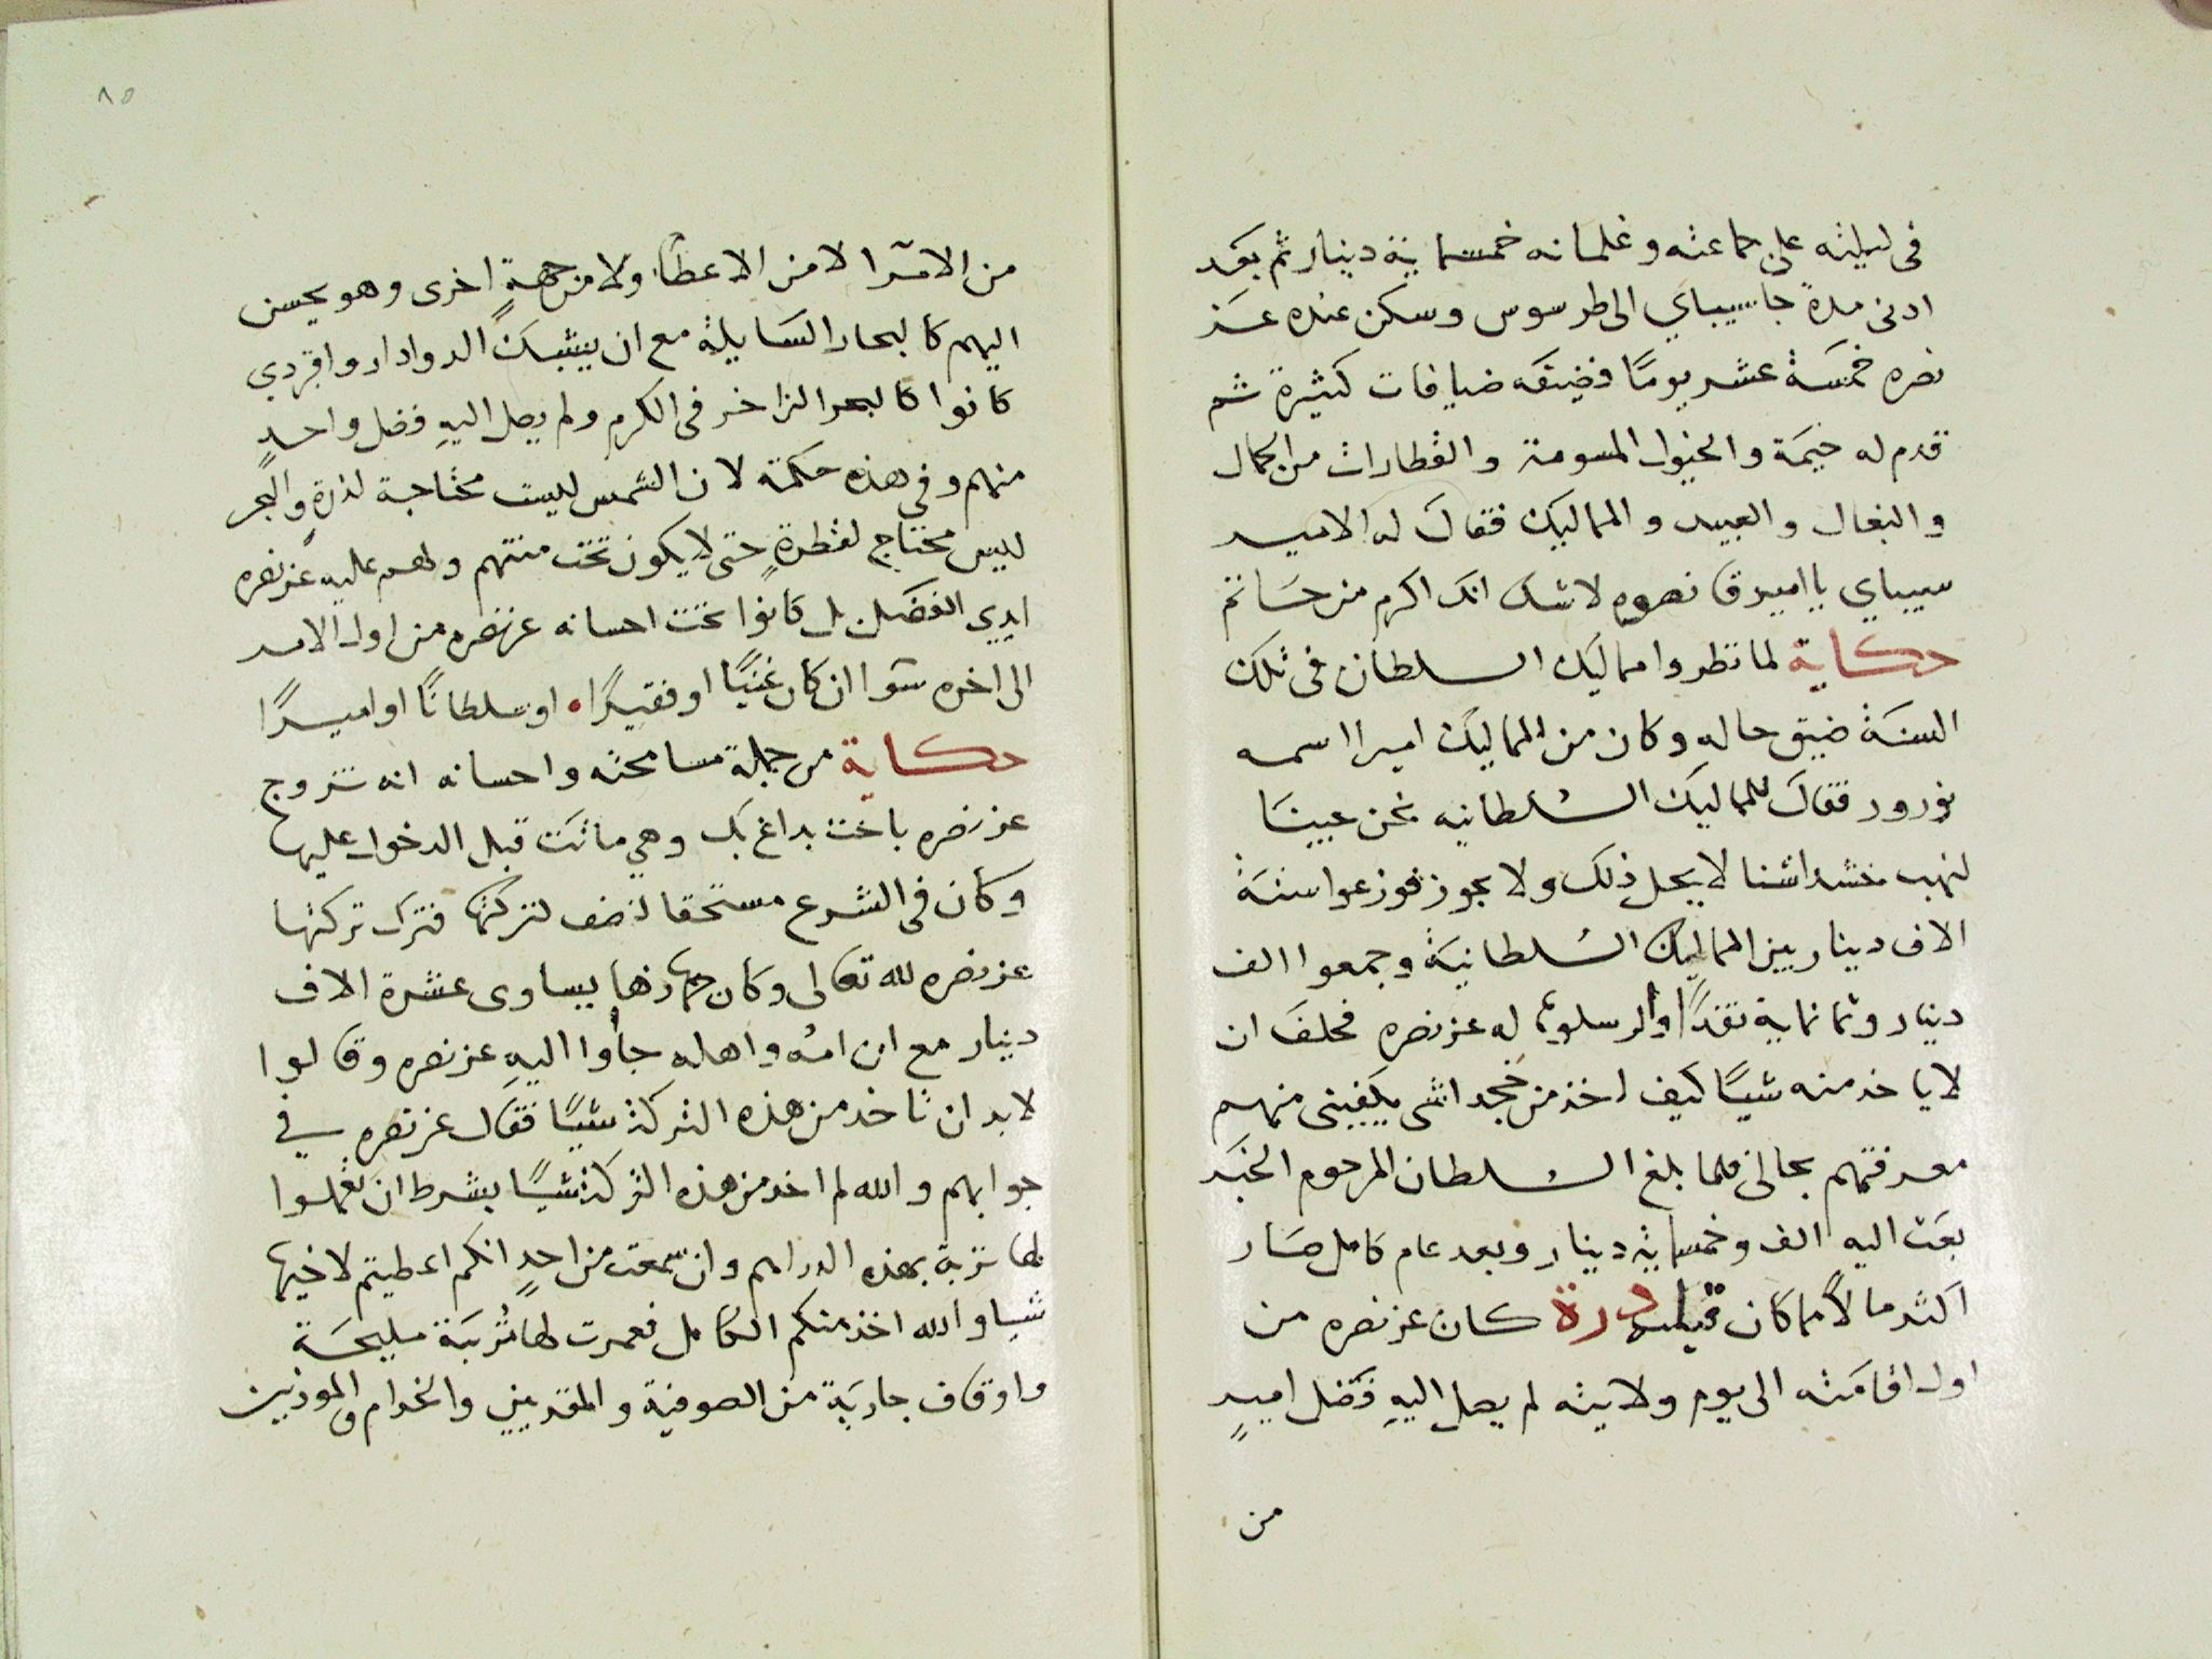 فى ليلته على جماعته وغلمانه خمسماية دينار ثم بعد
ادنى مدة جا سيباي الى طرسوس وسكن عنده عز
نصره خمسة عشر يومًا فضيفه ضيافات كثيرة ثم
قدم له خيمة والخيول المسومة والقطارات من الجمال
والبغال والعبيد والمماليك فقال له الامير
سيباي يا امير قانصوه لا شك انك اكرم من حاتم
حكاية لما نظروا مماليك السلطان فى تلك
السنة ضيق حاله وكان من المماليك اميرا اسمه
نورور فقال للمماليك السلطانيه نحن جينا
لنهب خشداشنا لا يحل ذلك ولا يجوز فوزعوا ستة
الاف دينار بين المماليك السلطانية وجمعوا الف
دينار وثمانماية نقدًا وارسلوها له عز نصره فحلف ان
لا ياخذ منه شيًا كيف اخذ من خجداشى يكفينى منهم
معرفتهم بحالى فلما بلغ السلطان المرحوم الخبر
بعث اليه الف وخمسماية دينار وبعد عام كامل صار
اكثر مالًا مما كان قبله درة كان عز نصره من
اول اقامته الى يوم ولايته لم يصل اليهِ فضل اميرٍ
من
٨٥
من الامرا لا من الاعطا ولا من جهةٍ اخرى وهو يحسن
اليهم كالبحار السايلة مع ان يشبك الدوادار واقبردي
كانوا كالبحر الزاخر فى الكرم ولم يصل اليهِ فضل واحدٍ
منهم وفي هذه حكمة لان الشمس ليست محتاجة لذرةٍ والبحر
ليس محتاج لقطرةٍ حتى لا يكون تحت منتهم ولهم عليه عز نصره
ايدي الفضل بل كانوا تحت احسانه عز نصره من اول الامر
الى اخره سوا ان كان غنيًا او فقيرًا، او سلطانًا او اميرًا
حكاية من جملة مسامحته واحسانه انه تزوج
عز نصره باخت بداغ بك وهي ماتت قبل الدخول عليها
وكان فى الشرع مستحقا لنصف تركتها فترك تركتها
عز نصره لله تعالى وكان جهازها يساوى عشرة الاف
دينار مع ان امه واهله جاوا اليهِ عز نصره وقالوا
لا بد ان تاخذ من هذه التركة شيًا فقال عز نصره في
جوابهم والله لم اخذ من هذه التركة شيًا بشرط ان تعملوا
لها تربة بهذه الدراهم وان سمعت من احدٍ انكم اعطيتم لاخيها
شيا والله اخذ منكم الكامل فعمرت لها تُربَة مليحة
واوقاف جارية من الصوفية والمقريين والخدام والموذنين